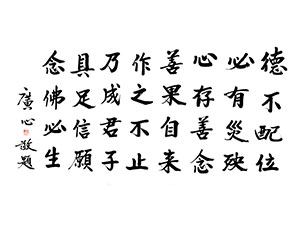 德不配位
必有災殃
心存善念
善果自来
作之不止
乃成君子
具足信願
念佛必生
廣心敬題